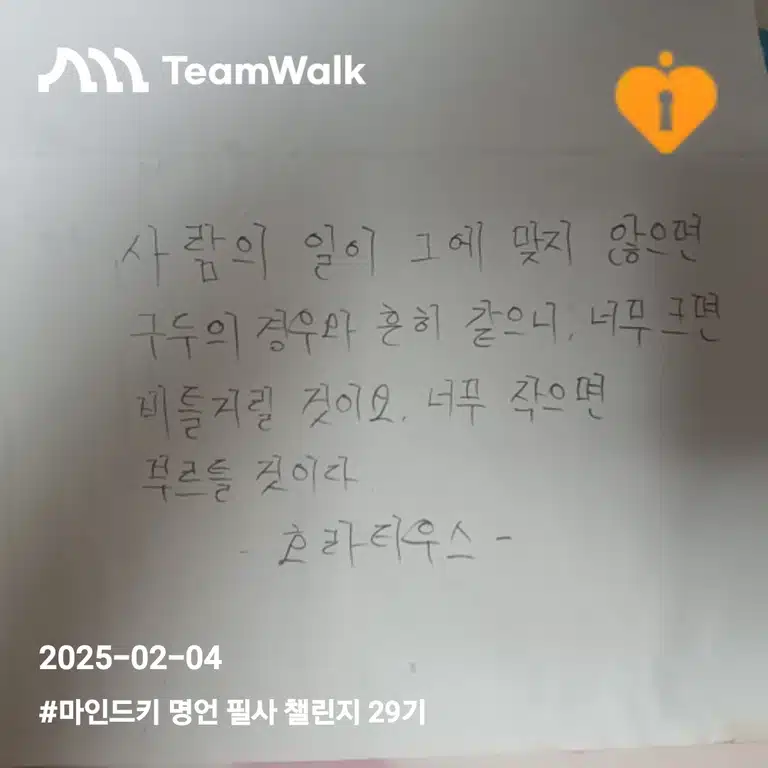 TeamWalk
사람의 일이 그에 맞지 않으면
구두의 경우와 흔히 같으니, 너무 크면
비틀거릴 것이요, 너무 작으면
부르틀 것이다
- 호라티우스 -
2025-02-04
#마인드키 명언 필사 챌린지 29기